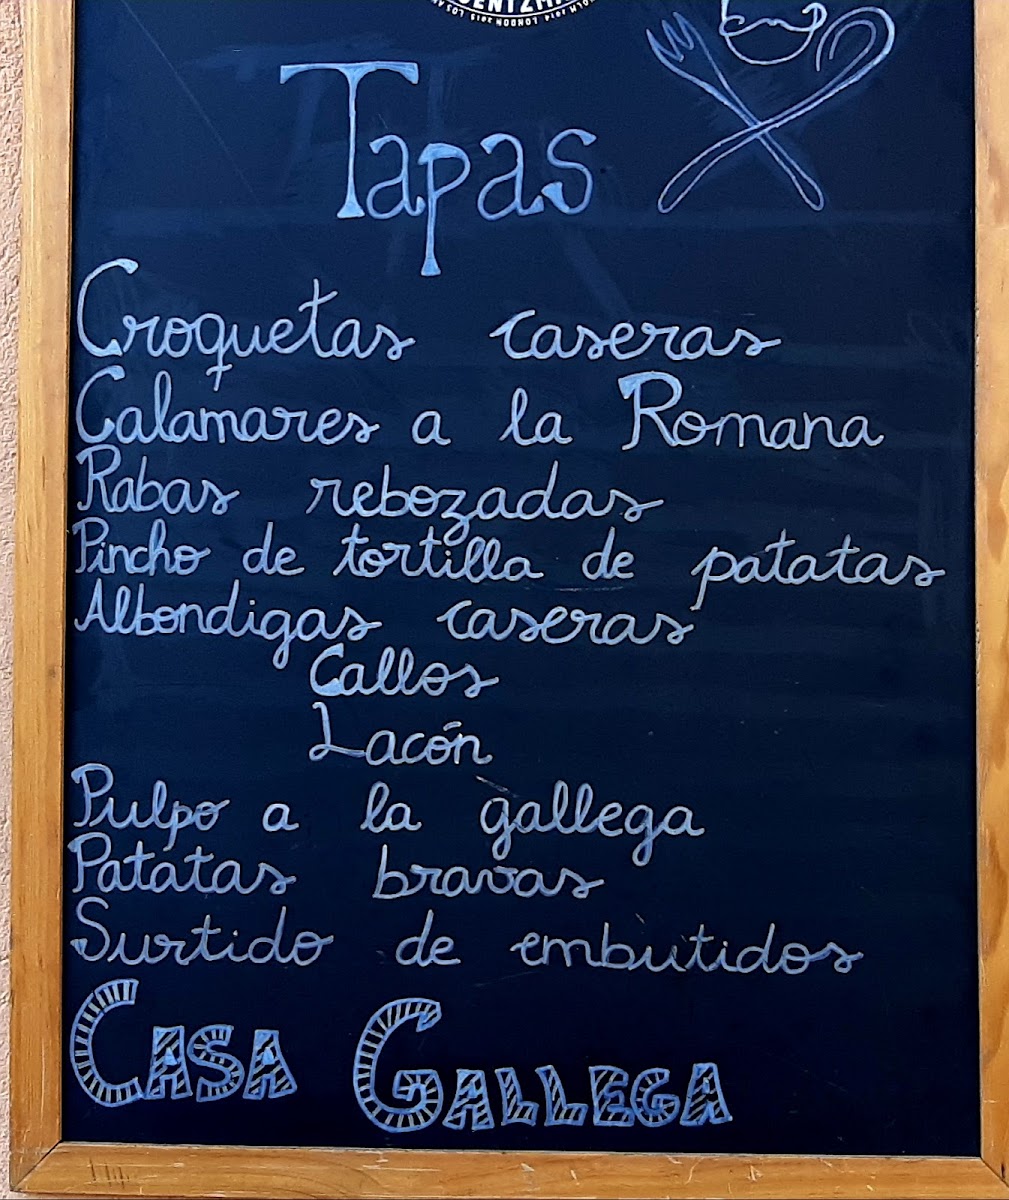 LONDON 2014
Tapas
Croquetas caseras
Calamares a la Romana
Rabas rebozadas
Pincho de tortilla de patatas
Albondigas caseras
Callos
Lacón
Pulpo a la gallega
Patatas bravas
Surtido de embutidos
CASA GALLEGA